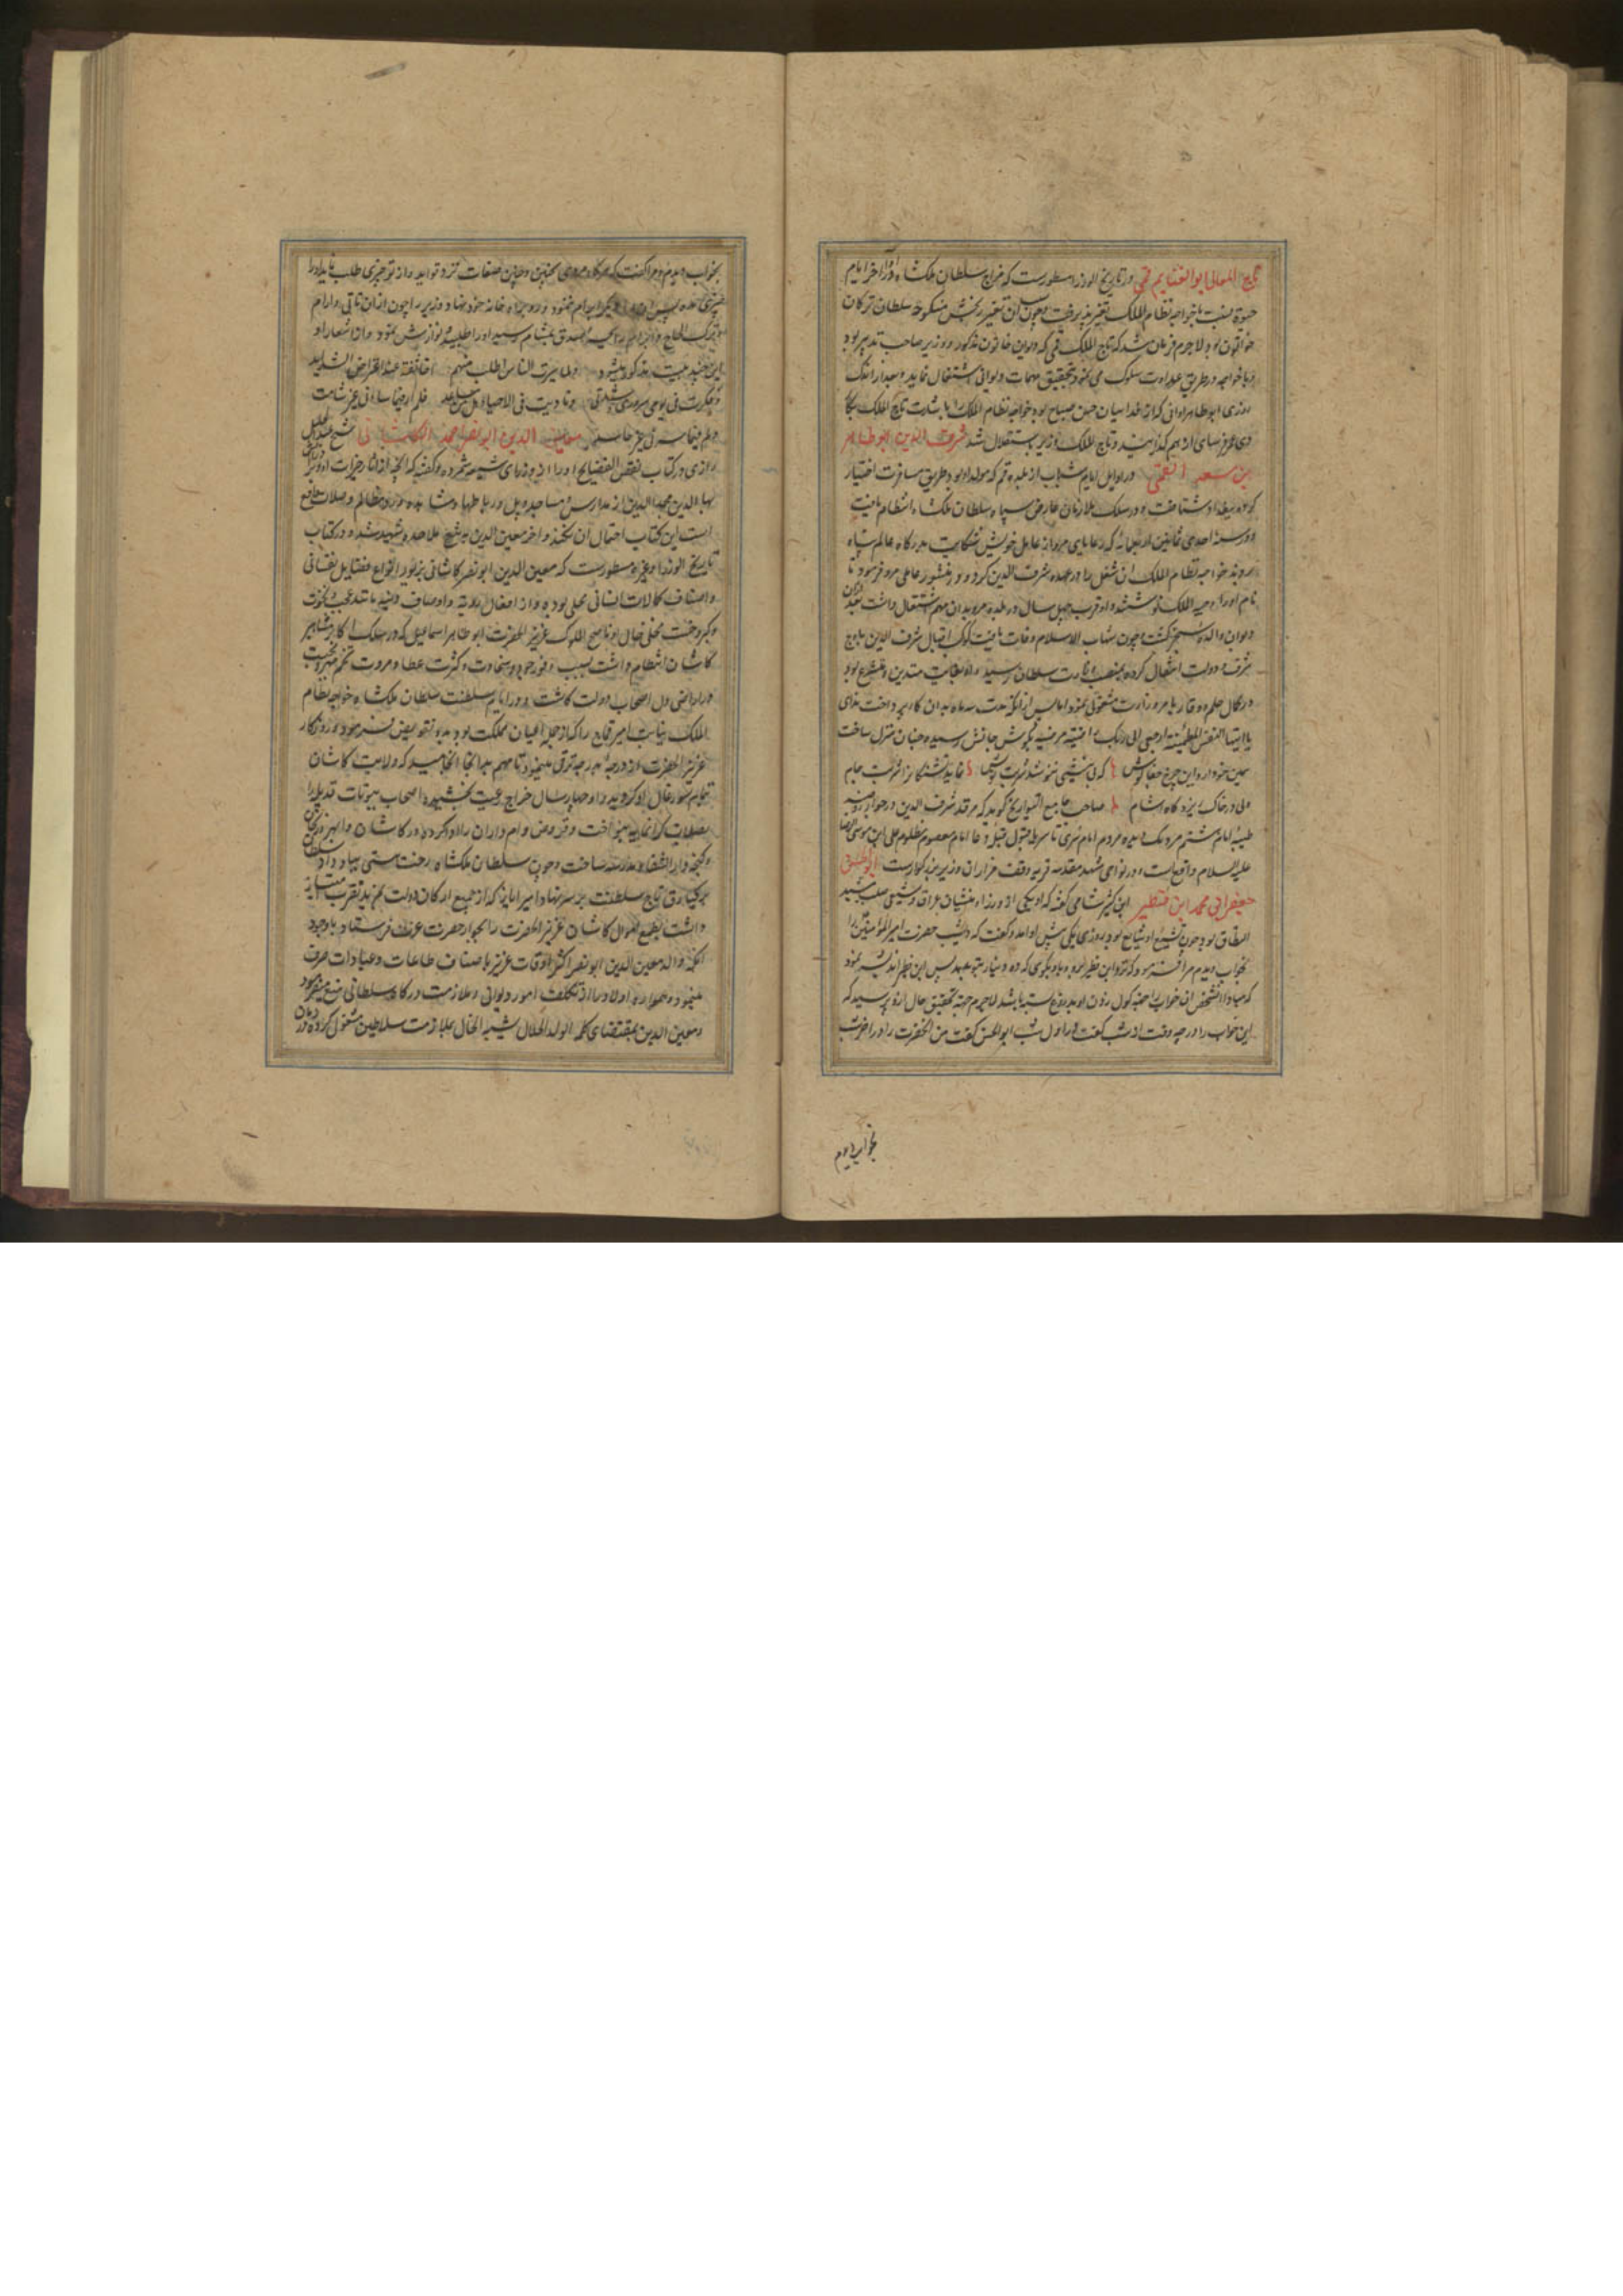 تاج المعالی ابو الغنایم قمی در تاریخ الوزرا مسطورست که مزاج سلطان ملکشاه در اواخر ایام
حیوة نسبت با خواجه نظام الملک تغیر پذیرفت و چون آن تغیر منکوحه سلطان ترکان
خواتون بود لاجرم فرمان شد که تاج الملک قمی که دیوان خاتون مذکور و وزیر صاحب تدبیر بود
و با خواجه در طریق عداوت سلوک می نمود بتحقیق مهمات دیوانی اشتغال نماید و بعد از اندک
روزی ابو طاهر اوانی که از فداییان حسن صباح بود خواجه نظام الملک را بشارت تاج الملک
شرف الدین ابو طاهر
بن سعد القمی در اوایل ایام شباب از بلده قم که مولد او بود طریق مسافرت اختیار
کرده ببغداد شتافت و در سلک ملازمان عارض سپاه سلطان ملکشاه انتظام یافت
و در سنه احدی ثمانین اربعمایه که رعایای مرو از عامل خویش شکایت بدرگاه عالم پناه
بردند خواجه نظام الملک آن شغل را در عهده شرف الدین کرد و در منشور عاملی مرو فرمود تا
نام او را وجیه الملک نوشتند و او قرب چهل سال در بلده مرو بدان مهم اشتغال داشت بعد
دیوان والده سنجر گشت و چون شهاب الاسلام وفات یافت کوکب اقبال شرف الدین باوج
شرف و دولت انتقال کرده بمنصب وزارت سلطان رسید و او بغایت متدین و متشرع بود
در کمال حلم و وقار بامر وزارت مشغولی نمود اما پس از آنکه مدت سه ماه بدان کار پرداخت ندای
یا ایتها النفس المطمئنة ارجعی الی ربک راضیة مرضیة بگوش جانش رسیده جنان منزل ساخت
همین خو دارد این چرخ جفا کوش که بی نیشی ننوشد شربت نوش نماید تشنگانرا شربت جام
ولی در خاک ریزد گاه اشام صاحب جامع التواریخ گوید که مرقد شرف الدین در جوار روضه
علیه السلام واقع است و در نواحی مشهد مقدسه قریه وقف مزار آن وزیر بزرگوارست
جعفرانی محمد ابن فنظیر ابن کثیر شامی گفته که او یکی از وزراء منشیان عراق و شیعی صلب شدید
المطاق بود چون تشیع او شایع بود روزی یکی پیش او آمد و گفت که دیشب حضرت امیر المؤمنین را
بخواب دیدم مرا فرمود که نزد ابن فنظیر برو و با و بگوی که ده دینار بتو بدهد پس ابن فنظیر اندیشه نمود
که مبادا آنشخص آن خواب را جهة گول زدن او بدروغ بسته باشد لاجرم جهة تحقیق حال ازو پرسید که
این خواب را در چه وقت از شب گفت در اول شب ابو الحسن گفت من آنحضرت را در آخر شب
بخواب دیدم
بخواب دیدم و مرا گفت که مردی بچنین و چنین صفات نزد تو آید و از تو چیزی طلب نماید او را
چیزی بده پس آن دیگر ابرام ننمود و رو براه خانه خود نهاد وزیر را چون ازان تأنی و ارام
و ترک الحاح و ابرام رایحه صدق بمشام رسید او را طلبیده نوازش نمود و از اشعار او
این چند بیت مذکور میشود ولما سبرت الناس اطلب منهم اخا ثقة عند اعتراض الشداید
وفکرت فی یومی سروری وشدتی ونادیت فی الاحیاء هل من مساعد فلم ار فیما ساءنی غیر شامت
ولم ار فیما سرنی غیر حاسد معین الدین ابو نصر احمد الکاشانی شیخ عبد الجلیل
رازی در کتاب نقض الفضایح او را از وزرای شیعه شمرده و گفته که آنچه از آثار خیرات او و برادران
بهاء الدین مجد الدین از مدارس و مساجد و پل و رباطها و مشاهده و رد مظالم و صلات واقع
است این کتاب احتمال آن نکند و آخر معین الدین بتیغ ملاحده شهید شد و در کتاب
تاریخ الوزرا و غیره مسطورست که معین الدین ابو نصر کاشانی بزیور انواع فضایل نفسانی
و اصناف کمالات انسانی محلی بوده و از افعال ردیه و اوصاف دنیه مانند عجب و نخوت
و کبر و خست مخلی خال او ناصح الملوک عزیز الحضرت ابو طاهر اسماعیل که در سلک اکابر مشاهیر
کاشان انتظام داشت بسبب وفور جود و سخاوت و کثرت عطا و مروت تخم مهر و محبت
در اراضی دل اصحاب دولت کاشت و در ایام سلطنت سلطان ملکشاه خواجه نظام
الملک نیابت امیر قماج را که از جمله اعیان مملکت بود بدو تفویض فرموده و روزگار
عزیز الحضرت از درجه بدرجه ترقی مینمود تا مهم بدانجا انجامید که ولایت کاشان
تمام سیورغال او گردید و او چهار سال خراج برعیت بخشیده اصحاب بیوتات قدیمه را
بصلات گرانمایه بنواخت و قروض وام داران را ادا کرده در کاشان و ابهر و زنجان
و گنجه دار الشفا و مدرسه ساخت و چون سلطان ملکشاه رخت هستی بباد داد سلطان
برکیارق تاج سلطنت بر سر نهاد امیر ایاز که از جمیع ارکان دولت بمزید تقرب امتیاز
داشت بطمع اموال کاشان عزیز الحضرت را بجوار حضرت عزت فرستاد باوجود
آنکه والد معین الدین ابو نصر اکثر اوقات عزیز باصناف طاعات و عبادات صرف
مینمود و همواره اولاد را از تکلف امور دیوانی و ملازمت درگاه سلطانی منع میفرمود
و معین الدین بمقتضای کلمه الولد الحلال شبیه الخال بملازمت سلاطین مشغولی کرده در زمان